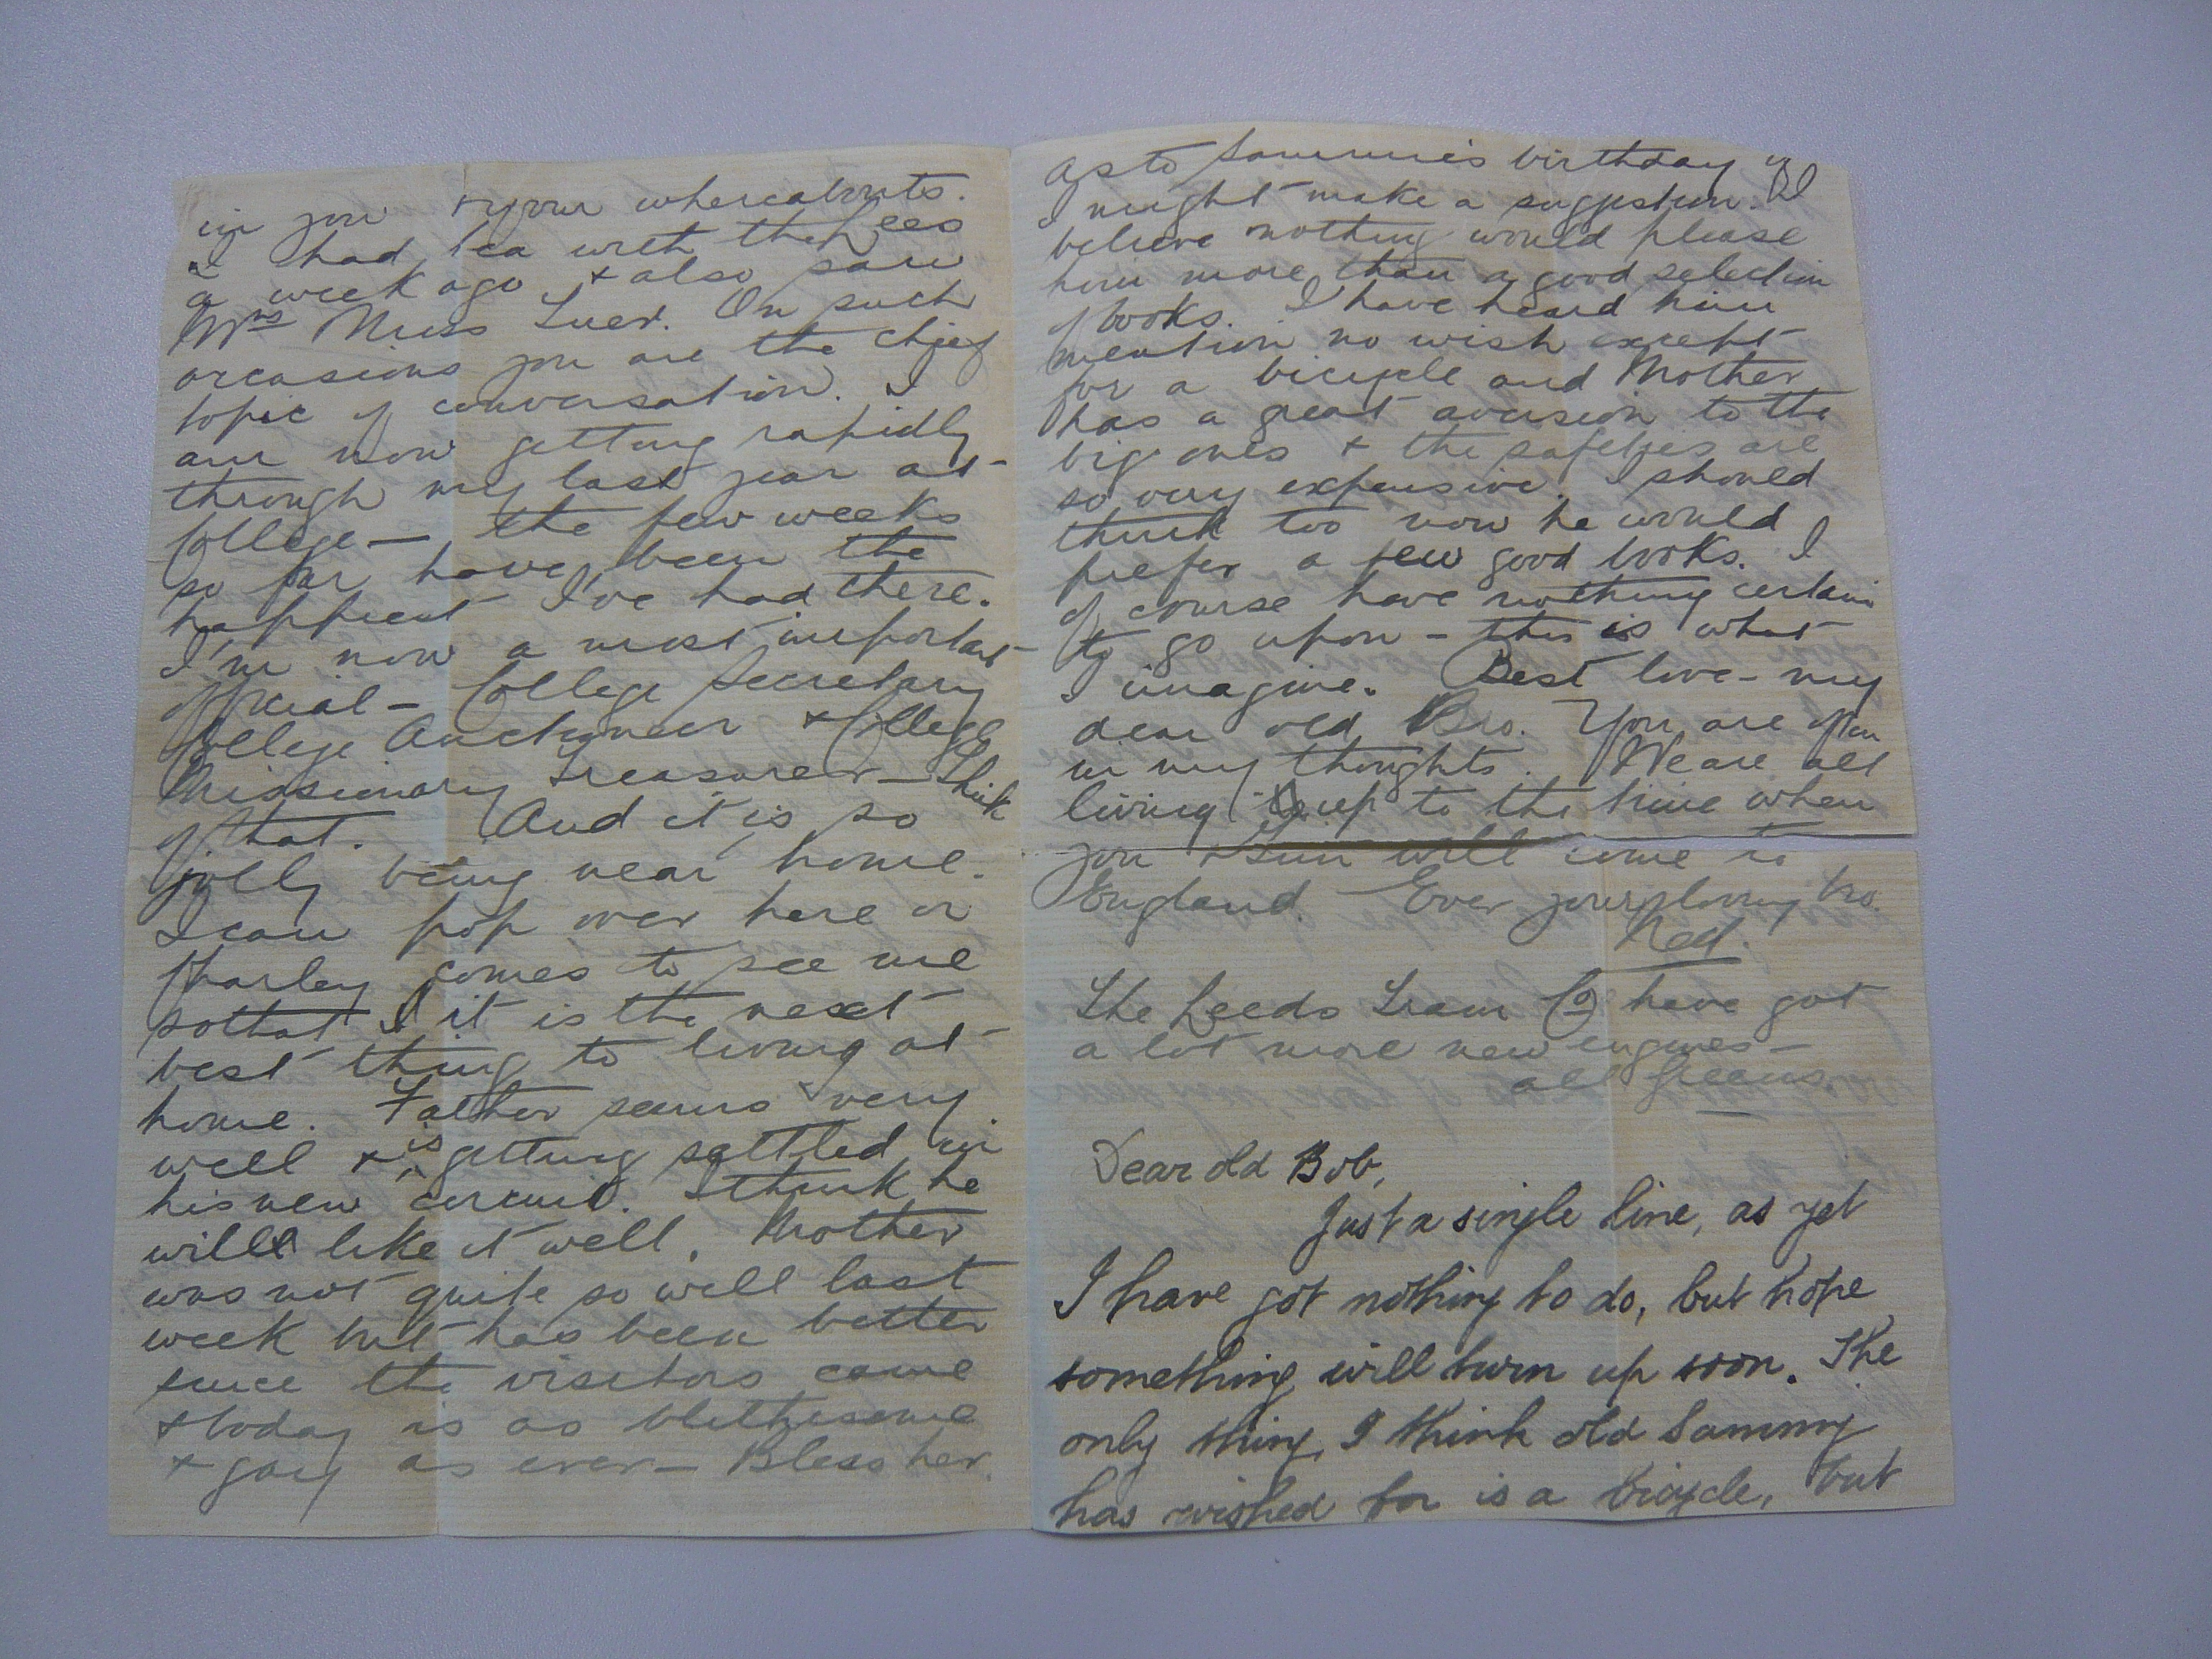 in you & your whereabouts.
I had tea with the Lees
a week ago & also saw
Mrs Miss Luer. On such
occasions you are the chief
topic of conversation. I
am now getting rapidly
through my last year at
College — the few weeks
so far have been the
happiest I've had there.
I'm now a most important
official — College Secretary
College Auctioneer & College
Missionary Treasurer — think
of that. And it is so
jolly being near home.
I can pop over here or
Charley comes to see me
so that I it is the next
best thing to living at
home. Father seems very
well & is getting settled in
his new circuit. I think he
will like it well. Mother
was not quite so well last
week but has been better
since the visitors came
& today is as blithesome
& gay as ever — Bless her.
As to Sammie's birthday if
I might make a suggestion. I
believe nothing would please
him more than a good selection
of books. I have heard him
mention no wish except
for a bicycle and Mother
has a great aversion to the
big ones & the safeties are
so very expensive. I should
think too now he would
prefer a few good books. I
of course have nothing certain
to go upon — this is what
I imagine. Best love — my
dear old Bro. You are often
in my thoughts. We are all
living up to the time when
you & will come to
England. Ever your loving bro.
Ned.
The Leeds Tram Co have got
a lot more new engines —
all Greens.
Dear old Bob,
Just a single line, as yet
I have got nothing to do, but hope
something will turn up soon. The
only thing I think old Sammy
has wished for is a bicycle, but